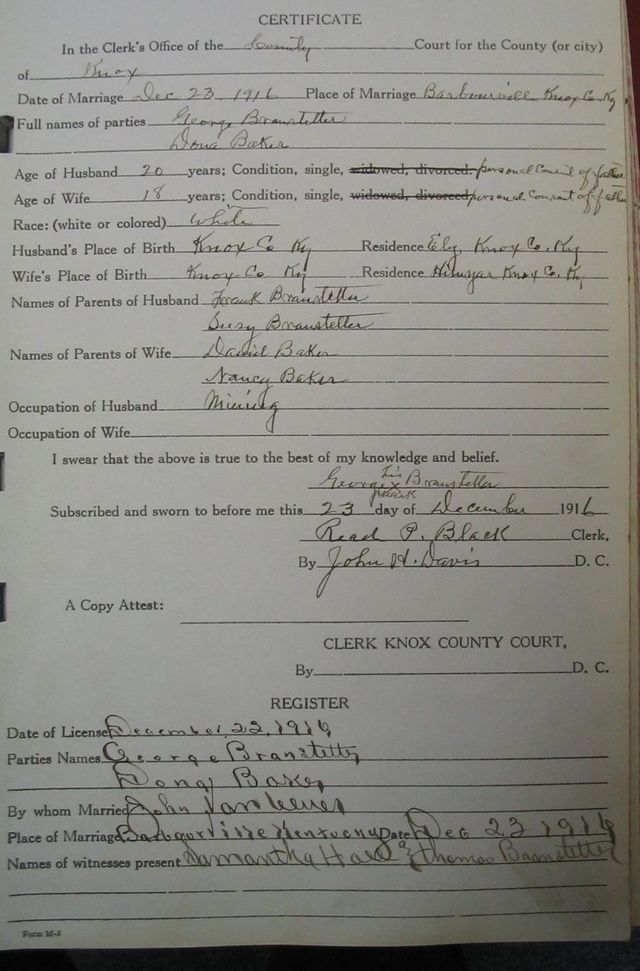 CERTIFICATE
In the Clerk's Office of the County Court for the County (or city)
of Knox
Date of Marriage Dec 23 1916 Place of Marriage Barbourville Knox Co. Ky
Full names of parties George Branstetter
Dona Baker
Age of Husband 20 years; Condition, single, widowed, divorced. personal Consent of father
Age of Wife 18 years; Condition, single, widowed, divorced personal Consent of father
Race: (white or colored) White
Husband's Place of Birth Knox Co Ky Residence Ely, Knox Co. Ky
Wife's Place of Birth Knox Co Ky Residence Hinyar Knox Co. Ky
Names of Parents of Husband Frank Branstetter
Susy Branstetter
Names of Parents of Wife David Baker
Nancy Baker
Occupation of Husband Mining
Occupation of Wife
I swear that the above is true to the best of my knowledge and belief.
George his x mark Branstetter
Subscribed and sworn to before me this 23 day of December 1916
Read P. Black Clerk,
By John H. Davis D. C.
A Copy Attest:
CLERK KNOX COUNTY COURT,
By D. C.
REGISTER
Date of License December, 22, 1916
Parties Names George Branstetter
Dona Baker
By whom Married John
Place of Marriage Kentucky Date Dec 23 1916
Names of witnesses present Samantha & Thomas Branstetter
Form M-3